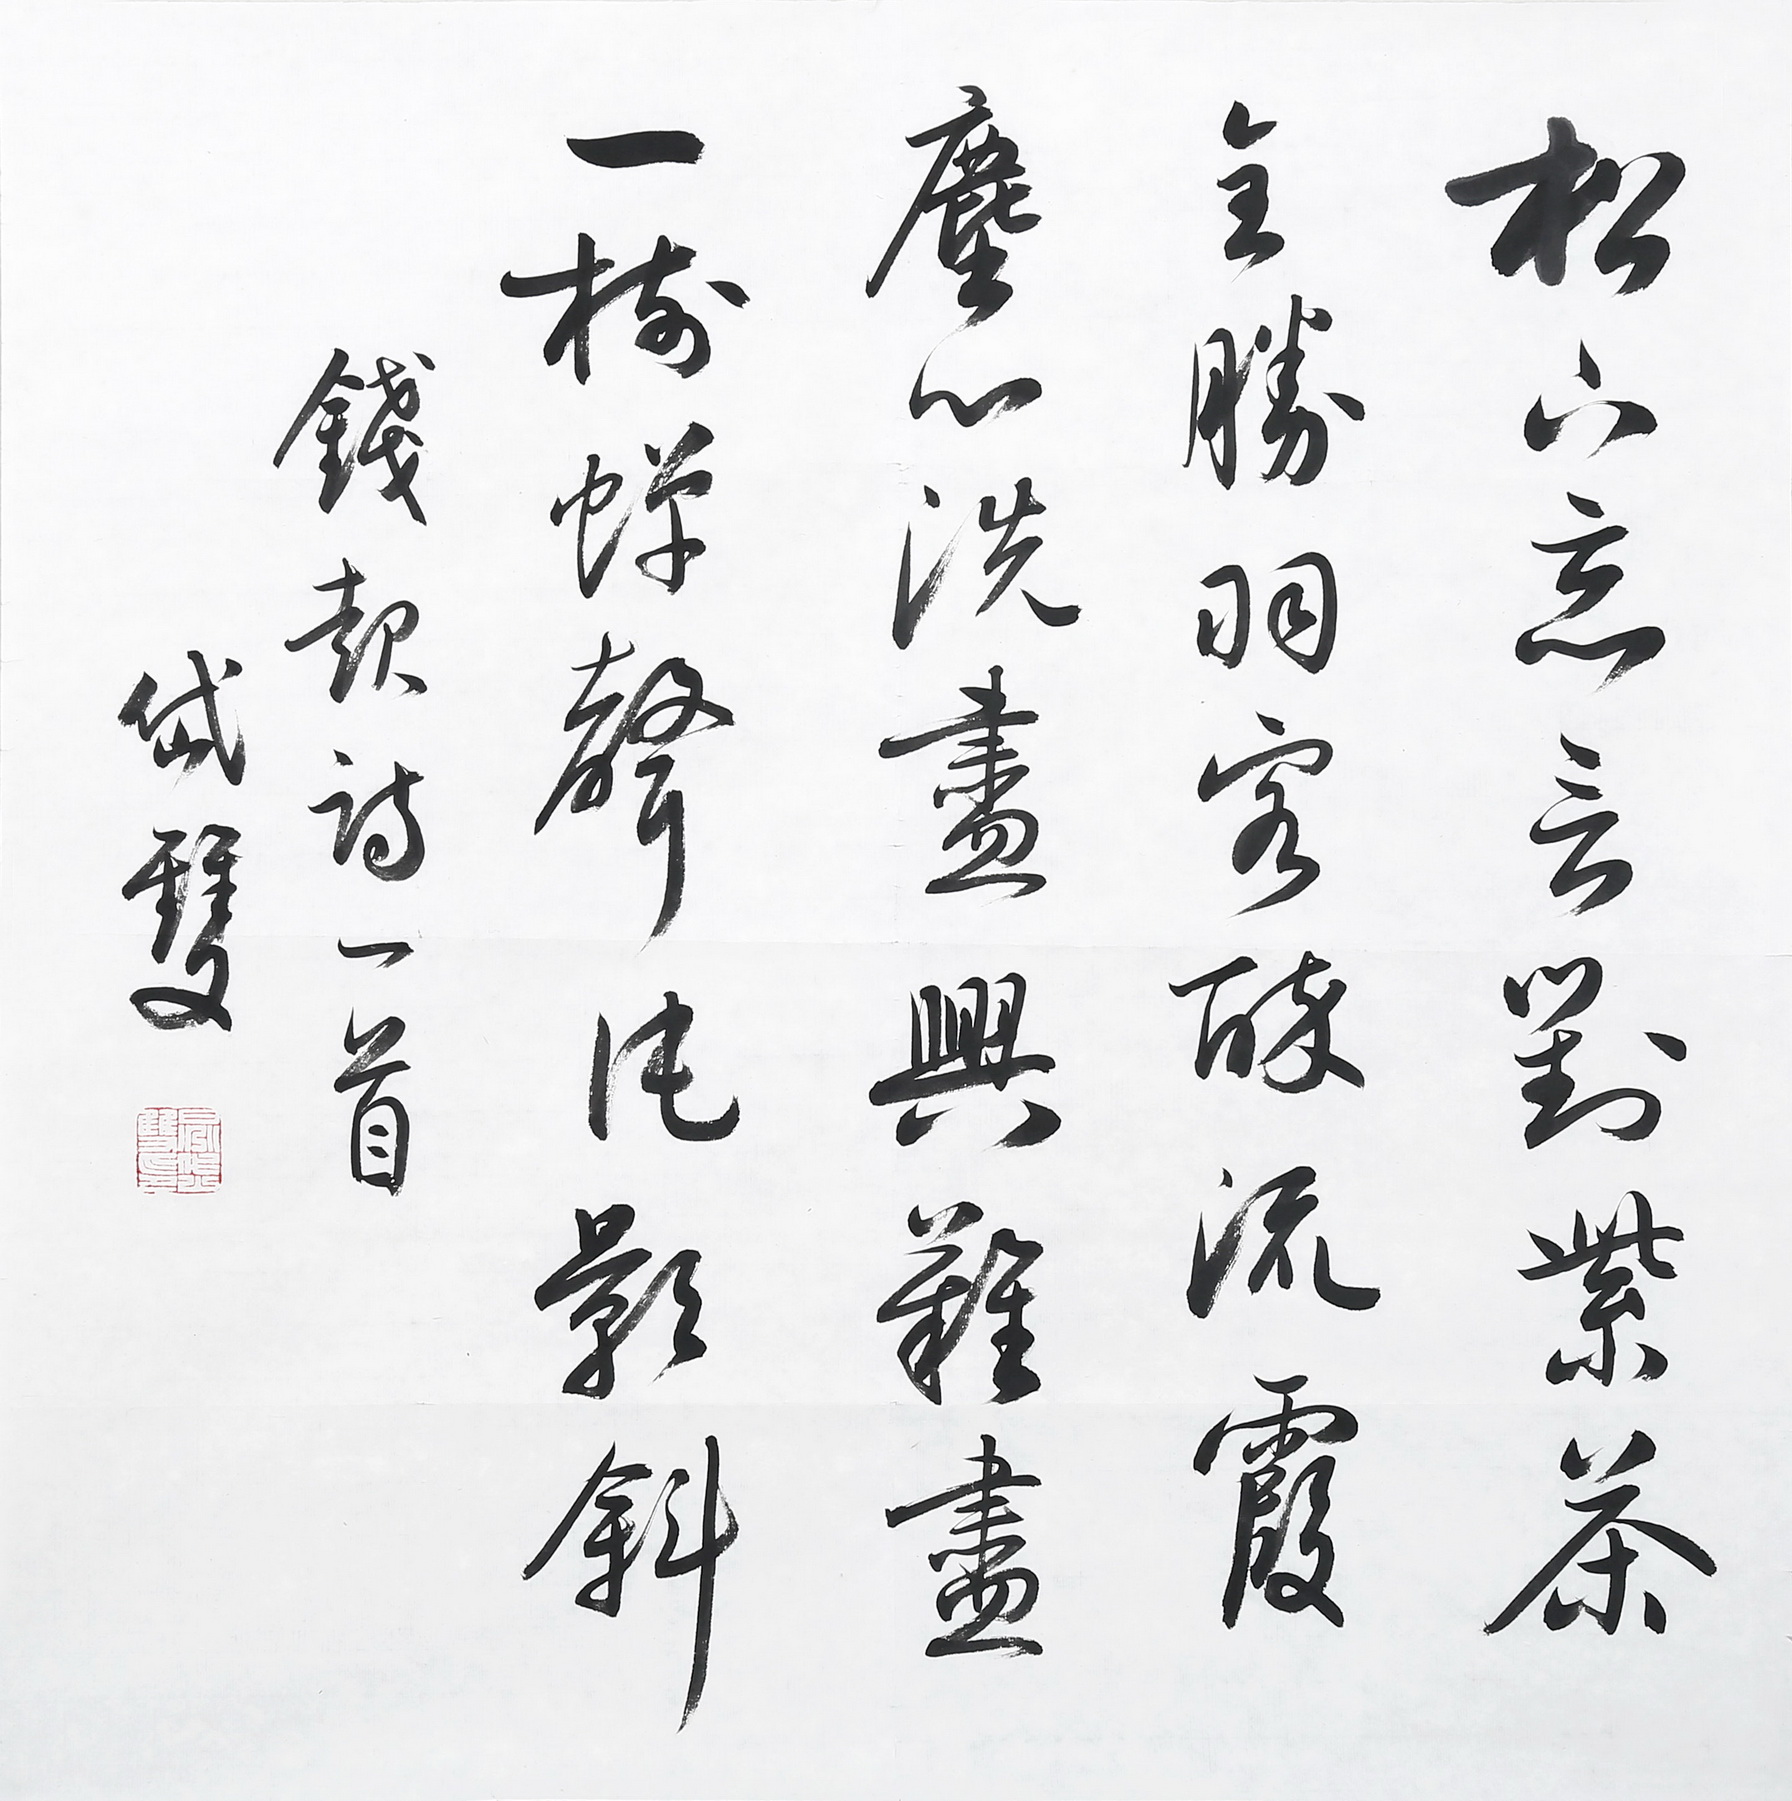 松下忘言對紫茶
全勝羽客醉流霞
塵心洗盡興難盡
一樹蟬聲片影斜
錢起詩一首
岱雙